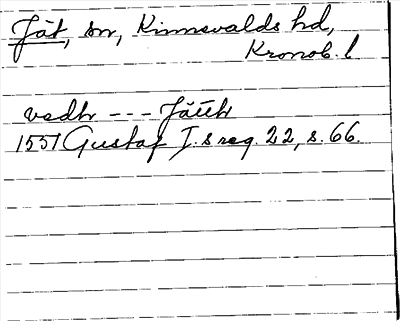 Jät, sn, Kinnevalds hd,
Kronob. l
vedh --- Jätth
1551 Gustaf I.s reg. 22, s. 66.